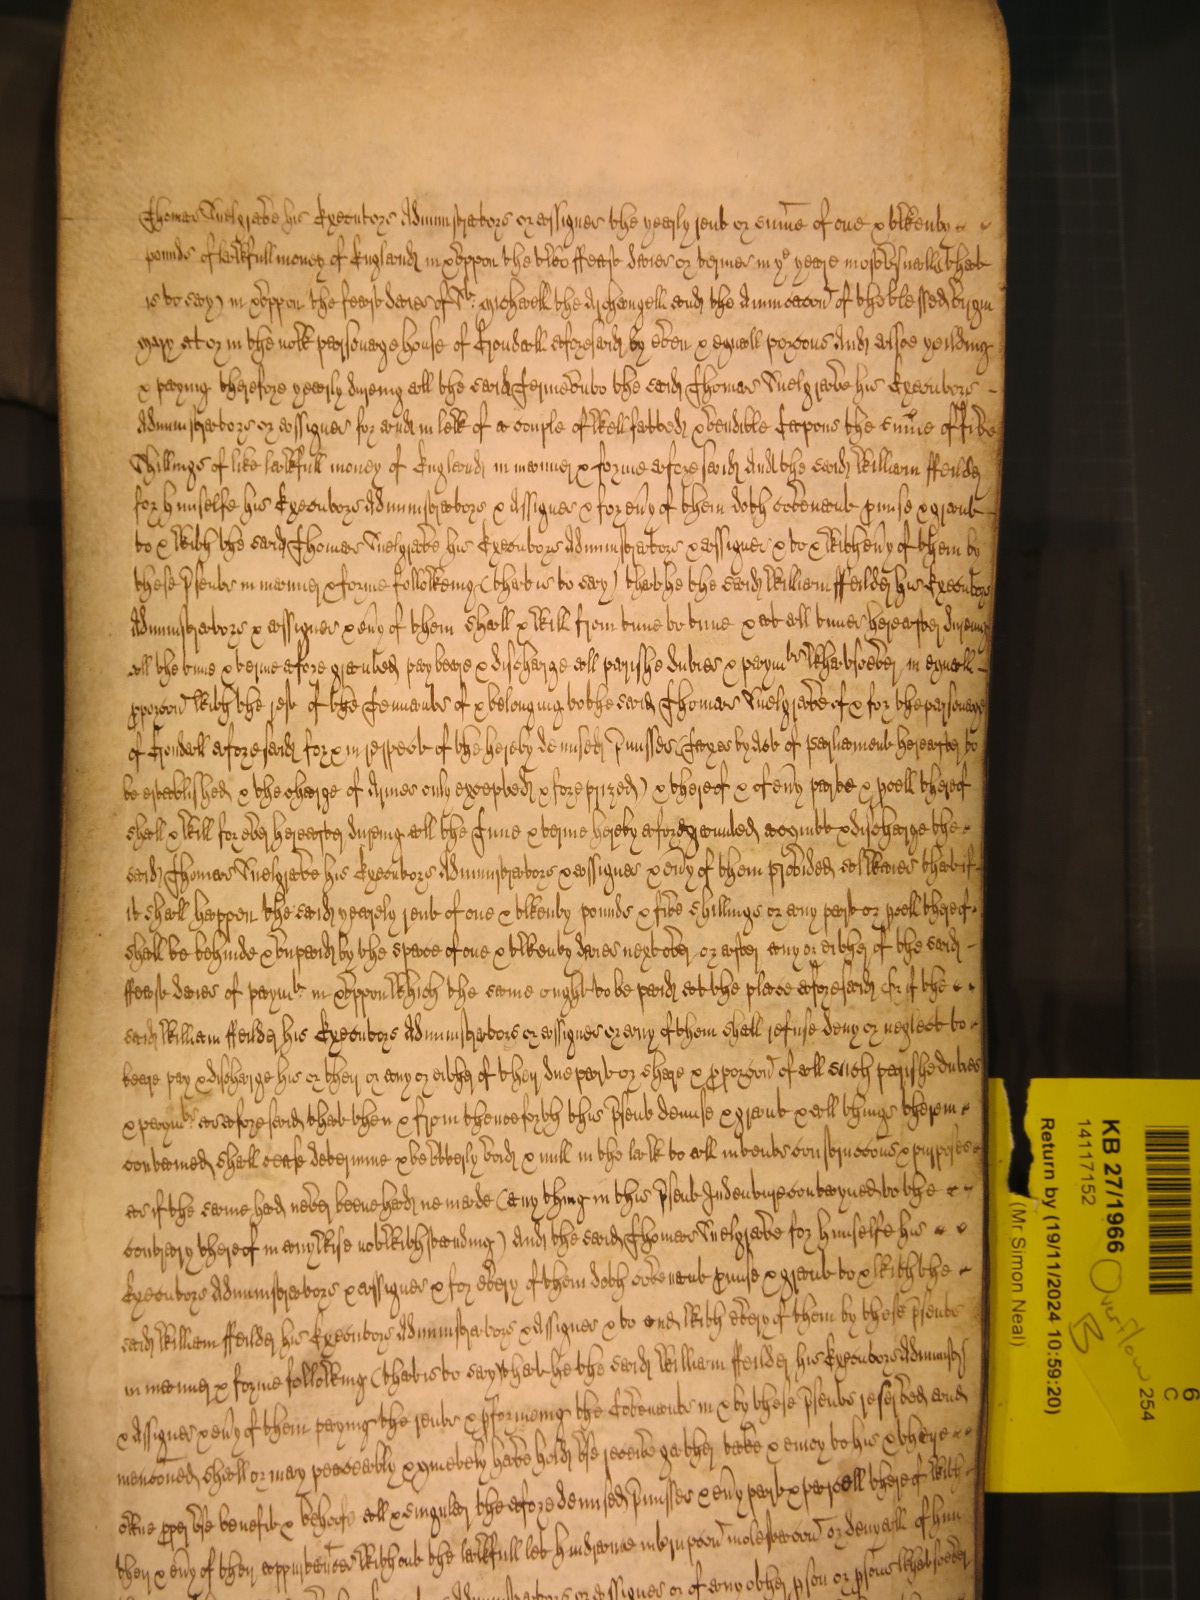 Thomas Mulgrabe his Executors Administrators or assignes the yearly rent or sume of one & twenty
pounds of lawfull money of England in & vppon the two ffeast daies or termes in ye yeare most vsuall (that
is to say) in & vppon the feast daies of St. Michaell the Archangell and the Annunciacon of the blessed virgin
Mary at or in the now parsonage house of Crondall aforesaid by even & equall porcons And alsoe yeilding
& paying therefore yearly dureing all the said Terme vnto the said Thomas his Executors
Administrators or assignes for and in lew of a couple of well fatted & vendible Capons the sume of five
Shillings of like lawfull money of England in manner & forme aforesaid And the said William ffeilder
for himselfe his Executors Administrators & Assignes & for eny of them doth covenant pmise & graunt
to & with the said Thomas his Executors Administrators & assignes & to & with eny of them by
these psents in manner & forme followeing (that is to say) that he the said William ffeilder his Executors
Administrators & assignes & eny of them shall & will from time to time & at all times hereafter dureing
all the time & terme afore graunted pay beare & discharge all parishe duties & paymts whatsoever in equall
pporcon with the rest of the Tennants of & belonging to the said Thomas of & for the parsonage
of Crondall aforesaid for & in respect of the hereby demised pmisses (Taxes by Act of Parliament hereafter to
be established & the charge of Armes only excepted & foreprized) & thereof & of eny parte & pcell thereof
shall & will for ever hereafter dureing all the Time & terme hereby afore graunted acquitt & discharge the
said Thomas his Executors Administrators & assignes & eny of them provided allwaies that if
it shall happen the said yearely rent of one & twenty pounds & five shillings or any part or pcell thereof
shall be behinde & vnpaid by the space of one & twenty daies next over or after any or either of the said
ffeast daies of paymt in & vppon which the same ought to be paid att the place aforesaid Or if the
said William ffeilder his Executors Administrators or assignes or any of them shall refuse deny or neglect to
beare pay & discharge his or their or any or either of their due part or share & pporcon of all such parishe duties
& paymts as aforesaid that then & from thenceforth this psent demise & graunt & all things therein
contained shall cease determine & be vtterly void & null in the law to all intents construccons & purposes
as if the same had never beene had ne made (any thing in this psent Indenture contayned to the
contrary thereof in any wise notwithstanding) And the said Thomas for himselfe his
Executors Administrators & assignes & for every of them doth covenant pmise & graunt to & with the
said William ffeilder his Executors Administrators & Assignes & to and with every of them by these psents
in manner & forme following (that is to say) that he the said William ffeilder his Executors Administrs
& Assignes & eny of them paying the rents & pformeing the Covenants in & by these psents reserved and
menconed shall or may peaceably & quietely have hold vse receive gather take & enioy to his & theire
owne pper vse benefit & behoofe all & singuler the afore demised pmisses & eny part & parcell thereof with
their & eny of their apptences without the lawfull let hindrance interrupcon molestacon or denyall of him
Administrators or assignes or of any other pson or psons whatsoever
KB 27/1966
14117152
Return by (19/11/2024 10:59:20)
(Mr Simon Neal)
Overflow
B
6
C
254